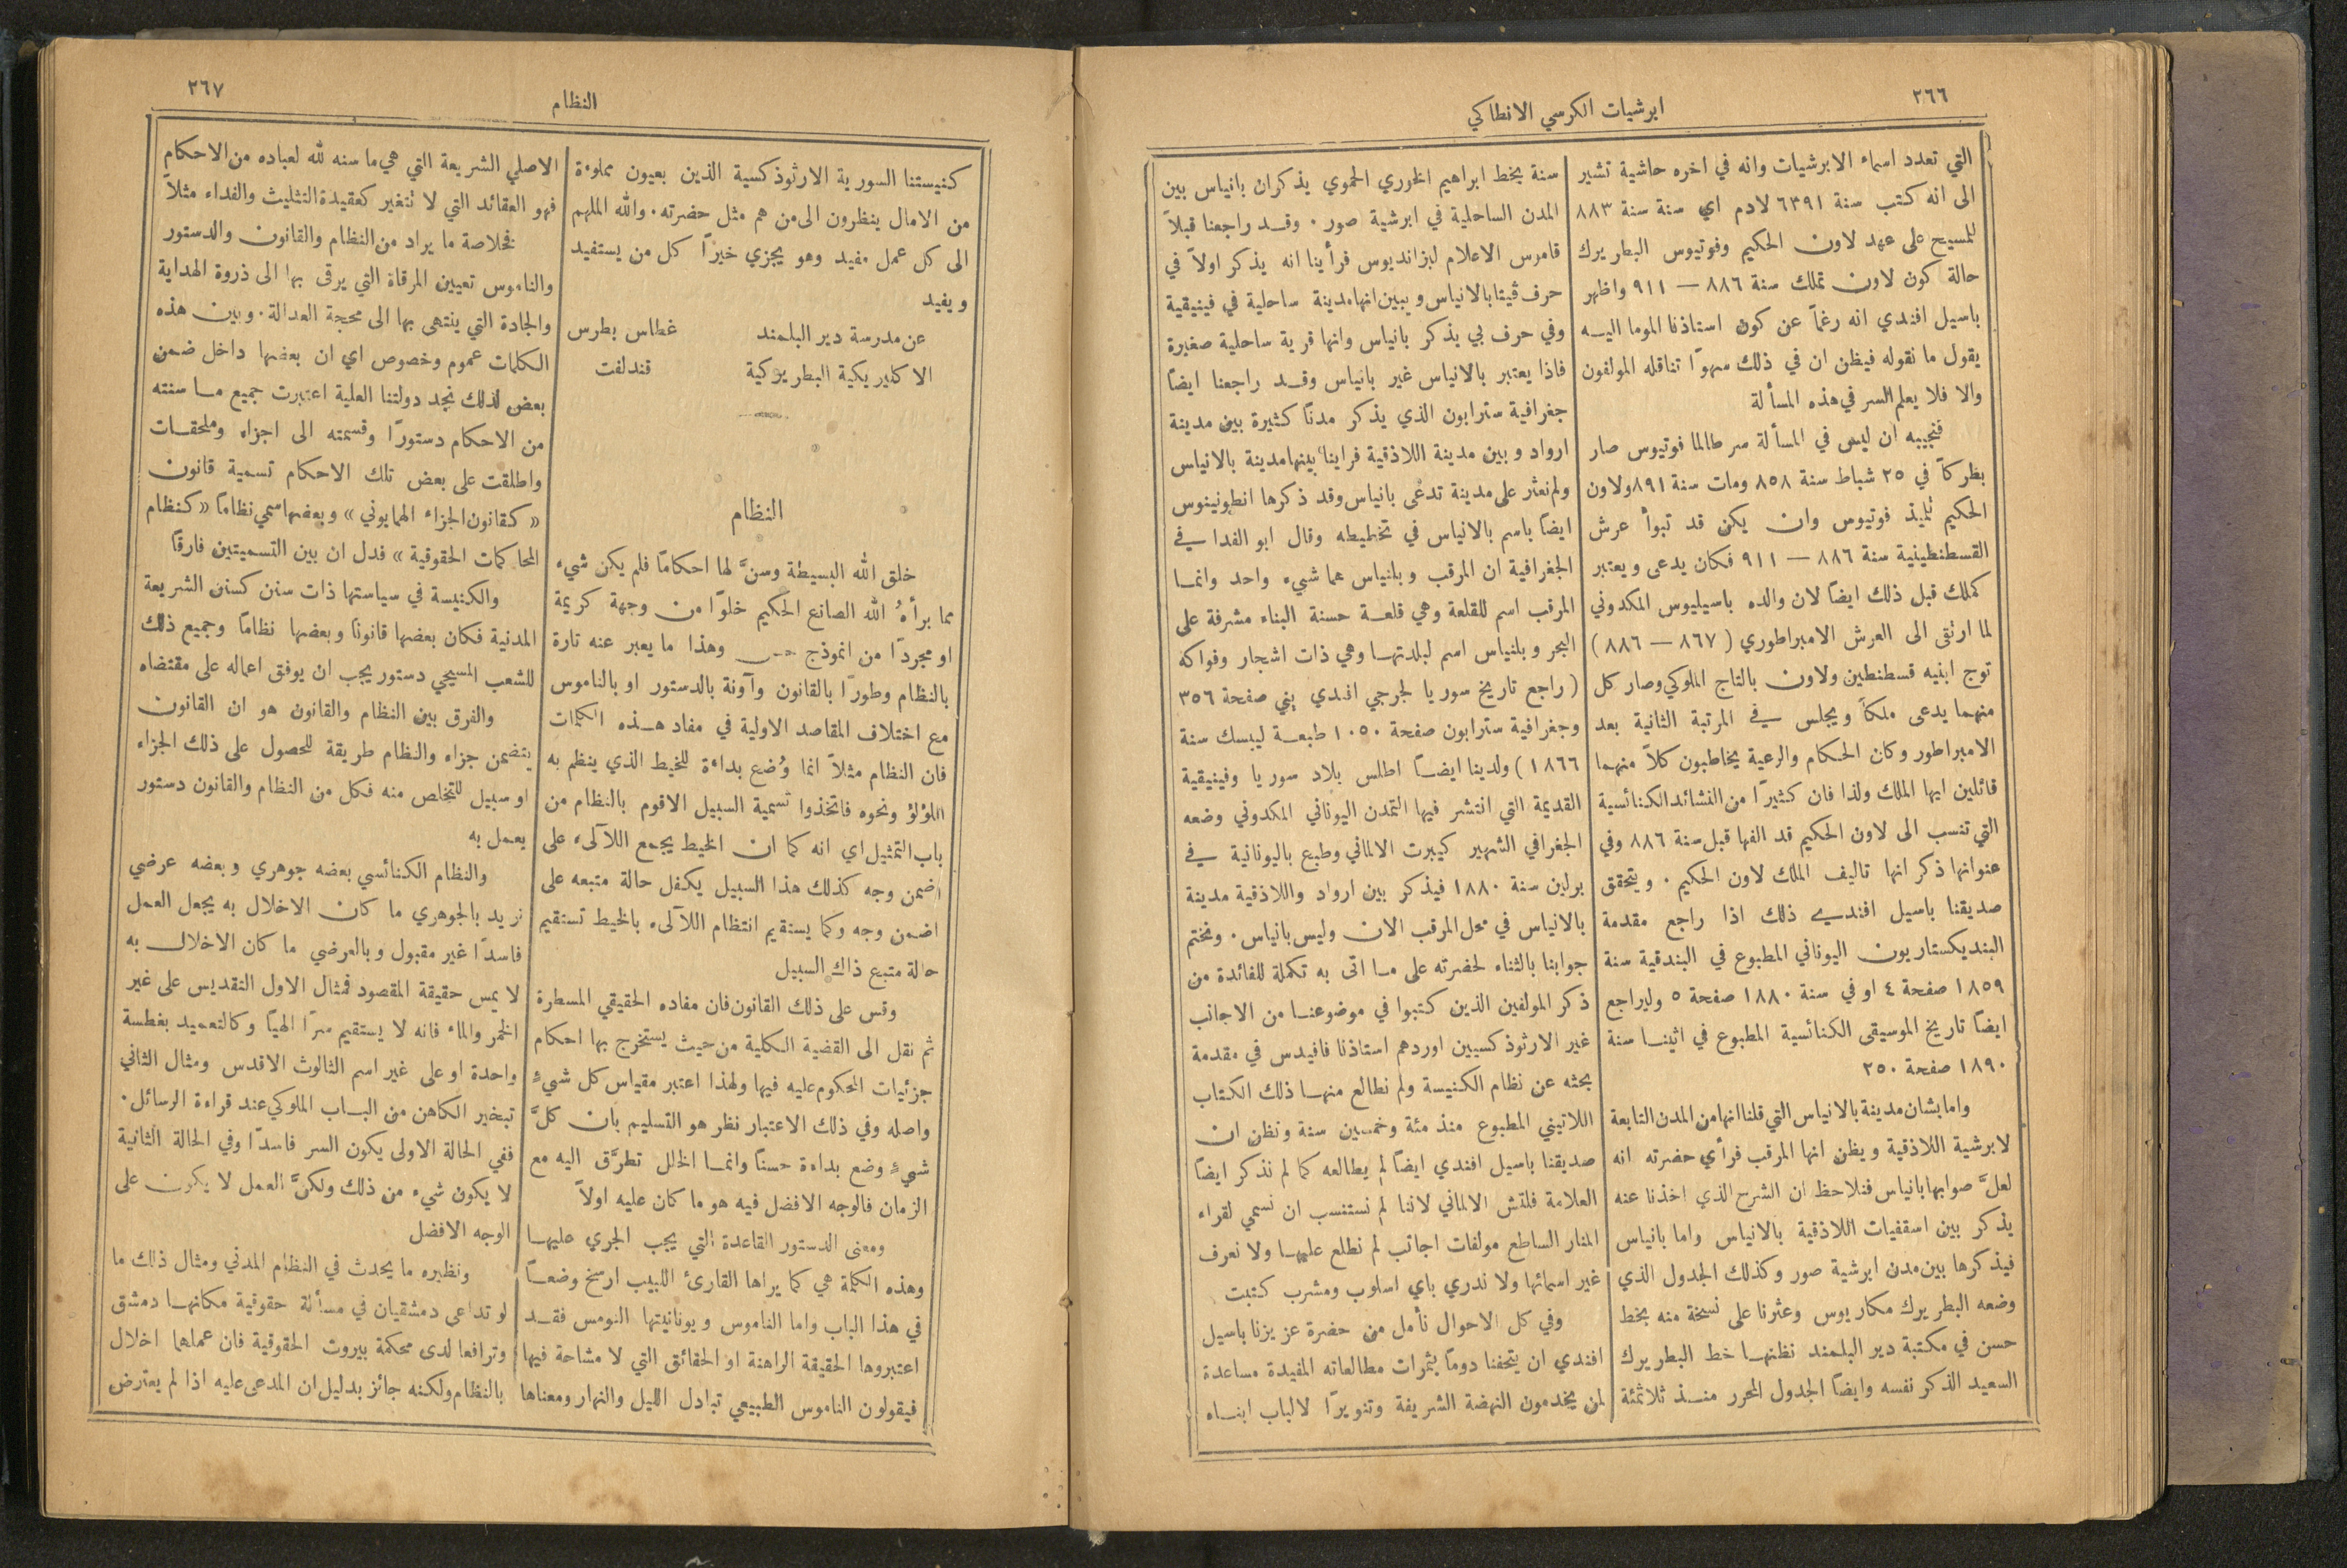 ٢٦٦
ابرشيات الكرسي الانطاكي
التي تعدد اسماء الابرشيات وانه في اخره حاشية تشير
الى انه كتب سنة ٦٣٩١ لادم اي سنة سنة ٨٨٣
للمسيح على عهد لاون الحكيم وفوتيوس البطريرك
حالة كون لاون تملك سنة ٨٨٦ — ٩١١ واظهر
باسيل افندي انه رغماً عن كون استاذنا الموما اليه
يقول ما نقوله فيظن ان في ذلك سهوًا تناقله المولفون
والا فلا يعلم السر في هذه المسألة
فنجيبه ان ليس في المسألة سر طالما فوتيوس صار
بطركاً في ٢٥ شباط سنة ٨٥٨ ومات سنة ٨٩١ ولاون
الحكيم تلميذ فوتيوس وان يكن قد تبوأ عرش
القسطنطينية سنة ٨٨٦ — ٩١١ فكان يدعى ويعتبر
كملك قبل ذلك ايضاً لان والده باسيليوس المكدوني
لما ارتقى الى العرش الامبراطوري ( ٨٦٧ — ٨٨٦ )
توج ابنيه قسطنطين ولاون بالتاج الملوكي وصار كل
منهما يدعى ملكاً ويجلس في المرتبة الثانية بعد
الامبراطور وكان الحكام والرعية يخاطبون كلاً منهما
قائلين ايها الملك ولذا فان كثيرًا من النشائد الكنائسية
التي تنسب الى لاون الحكيم قد الفها قبل سنة ٨٨٦ وفي
عنوانها ذكر انها تاليف الملك لاون الحكيم . ويتحقق
صديقنا باسيل افندي ذلك اذا راجع مقدمة
البنديكستاريون اليوناني المطبوع في البندقية سنة
١٨٥٩ صفحة ٤ او في سنة ١٨٨٠ صفحة ٥ وليراجع
ايضاً تاريخ الموسيقى الكنائسية المطبوع في اثينا سنة
١٨٩٠ صفحة ٢٥٠
واما بشان مدينة بالانياس التي قلنا انها من المدن التابعة
لابرشية اللاذقية ويظن انها المرقب فرأي حضرته انه
لعلَّ صوابها بانياس فنلاحظ ان الشرح الذي اخذنا عنه
يذكر بين اسقفيات اللاذقية بالانياس واما بانياس
فيذكرها بين مدن ابرشية صور وكذلك الجدول الذي
وضعه البطريرك مكاريوس وعثرنا على نسخة منه بخط
حسن في مكتبة دير البلمند نظنها خط البطريرك
السعيد الذكر نفسه وايضاً الجدول المحرر منذ ثلاثمئة
سنة بخط ابراهيم الخوري الحموي يذكران بانياس بين
المدن الساحلية في ابرشية صور . وقد راجعنا قبلاً
قاموس الاعلام لبزانديوس فرأينا انه يذكر اولاً في
حرف ڤيتا بالانياس ويبين انها مدينة ساحلية في فينيقية
وفي حرف بي يذكر بانياس وانها قرية ساحلية صغيرة
فاذا يعتبر بالانياس غير بانياس وقد راجعنا ايضاً
جغرافية سترابون الذي يذكر مدنًا كثيرة بين مدينة
ارواد وبين مدينة اللاذقية فراينا بينها مدينة بالانياس
ولم نعثر على مدينة تدعى بانياس وقد ذكرها انطونينوس
ايضاً باسم بالانياس في تخطيطه وقال ابو الفدا في
الجغرافية ان المرقب وبلنياس هما شيء واحد وانما
المرقب اسم للقلعة وهي قلعة حسنة البناء مشرفة على
البحر وبلنياس اسم لبلدتها وهي ذات اشجار وفواكه
( راجع تاريخ سوريا لجرجي افندي يني صفحة ٣٥٦
وجغرافية سترابون صفحة ١٠٥٠ طبعة ليبسك سنة
١٨٦٦ ) ولدينا ايضاً اطلس بلاد سوريا وفينيقية
القديمة التي انتشر فيها التمدن اليوناني المكدوني وضعه
الجغرافي الشهير كيبرت الالماني وطبع باليونانية في
برلين سنة ١٨٨٠ فيذكر بين ارواد واللاذقية مدينة
بالانياس في محل المرقب الان وليس بانياس . ونختم
جوابنا بالثناء لحضرته على ما اتى به تكملة للفائدة من
ذكر المولفين الذين كتبوا في موضوعنا من الاجانب
غير الارثوذكسيين اوردهم استاذنا فافيدس في مقدمة
بحثه عن نظام الكنيسة ولم نطالع منها ذلك الكتاب
اللاتيني المطبوع منذ مئة وخمسين سنة ونظن ان
صديقنا باسيل افندي ايضاً لم يطالعه كما لم نذكر ايضاً
العلامة فلتش الالماني لاننا لم نستنسب ان نسمي لقراء
المنار الساطع مولفات اجانب لم نطلع عليها ولا نعرف
غير اسمائها ولا ندري باي اسلوب ومشرب كتبت
وفي كل الاحوال نأمل من حضرة عزيزنا باسيل
افندي ان يتحفنا دوماً بثمرات مطالعاته المفيدة مساعدة
لمن يخدمون النهضة الشريفة وتنويرًا لالباب ابناء
٢٦٧
النظام
كنيستنا السورية الارثوذكسية الذين بعيون مملوءة
من الامال ينظرون الى من هم مثل حضرته . والله الملهم
الى كل عمل مفيد وهو يجزي خيرًا كل من يستفيد
ويفيد
عن مدرسة دير البلمند غطاس بطرس
الاكليريكية البطريركية قندلفت
النظام
خلق الله البسيطة وسنَّ لها احكامًا فلم يكن شيء
مما برأهُ الله الصانع الحكيم خلوًا من وجهة كريمة
او مجردًا من انموذج وهذا ما يعبر عنه تارة
بالنظام وطورًا بالقانون وآونة بالدستور او بالناموس
مع اختلاف المقاصد الاولية في مفاد هذه الكلمات
فان النظام مثلاً انما وُضع بداءة للخيط الذي ينظم به
اللؤلؤ ونحوه فاتخذوا تسمية السبيل الاقوم بالنظام من
باب التمثيل اي انه كما ان الخيط يجمع اللآلىء على
اضمن وجه كذلك هذا السبيل يكفل حالة متبعه على
اضمن وجه وكما يستقيم انتظام اللآلىء بالخيط تستقيم
حالة متبع ذاك السبيل
وقس على ذلك القانون فان مفاده الحقيقي المسطرة
ثم نقل الى القضية الكلية من حيث يستخرج بها احكام
جزئيات المحكوم عليه فيها ولهذا اعتبر مقياس كل شيءٍ
واصله وفي ذلك الاعتبار نظر هو التسليم بان كلَّ
شيءٍ وضع بداءة حسنًا وانما الخلل تطرَّق اليه مع
الزمان فالوجه الافضل فيه هو ما كان عليه اولاً
ومعنى الدستور القاعدة التي يجب الجري عليها
وهذه الكلمة هي كما يراها القارئ اللبيب ارسخ وضعاً
في هذا الباب واما الناموس ويونانيتها النومس فقد
اعتبروها الحقيقة الراهنة او الحقائق التي لا مشاحة فيها
فيقولون الناموس الطبيعي تبادل الليل والنهار ومعناها
الاصلي الشريعة التي هي ما سنه الله لعباده من الاحكام
فهو العقائد التي لا تتغير كعقيدة التثليث والفداء مثلاً
فخلاصة ما يراد من النظام والقانون والدستور
والناموس تعيين المرقاة التي يرقى بها الى ذروة الهداية
والجادة التي ينتهى بها الى محجة العدالة . وبين هذه
الكلمات عموم وخصوص اي ان بعضها داخل ضمن
بعض لذلك نجد دولتنا العلية اعتبرت جميع ما سنته
من الاحكام دستورًا وقسمته الى اجزاء وملحقات
واطلقت على بعض تلك الاحكام تسمية قانون
« كقانون الجزاء الهمايوني » وبعضها سمي نظامًا « كنظام
المحاكمات الحقوقية » فدل ان بين التسميتين فارقًا
والكنيسة في سياستها ذات سنن كسنن الشريعة
المدنية فكان بعضها قانونًا وبعضها نظامًا وجميع ذلك
للشعب المسيحي دستور يجب ان يوفق اعماله على مقتضاه
والفرق بين النظام والقانون هو ان القانون
يتضمن جزاء والنظام طريقة للحصول على ذلك الجزاء
او سبيل للتخلص منه فكل من النظام والقانون دستور
يعمل به
والنظام الكنائسي بعضه جوهري وبعضه عرضي
نريد بالجوهري ما كان الاخلال به يجعل العمل
فاسدًا غير مقبول وبالعرضي ما كان الاخلال به
لا يمس حقيقة المقصود فمثال الاول التقديس على غير
الخمر والماء فانه لا يستقيم سرًا الهيًا وكالتعميد بغطسة
واحدة او على غير اسم الثالوث الاقدس ومثال الثاني
تبخير الكاهن من الباب الملوكي عند قراءة الرسائل .
ففي الحالة الاولى يكون السر فاسدًا وفي الحالة الثانية
لا يكون شيء من ذلك ولكنَّ العمل لا يكون على
الوجه الافضل
ونظيره ما يحدث في النظام المدني ومثال ذلك ما
لو تداعى دمشقيان في مسألة حقوقية مكانها دمشق
وترافعا لدى محكمة بيروت الحقوقية فان عملهما اخلال
بالنظام ولكنه جائز بدليل ان المدعى عليه اذا لم يعترض